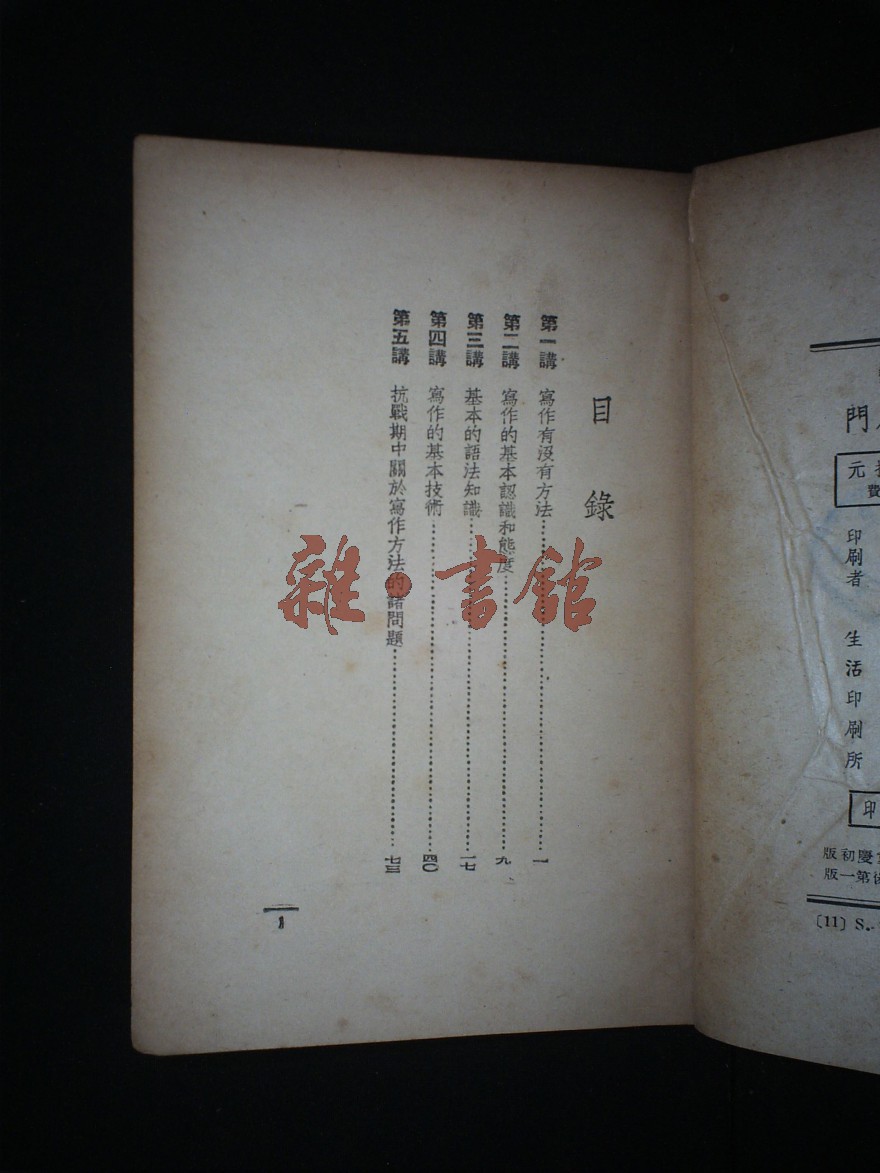 目錄
第一講 寫作有沒有方法……一
第二講 寫作的基本認識和態度……九
第三講 基本的語法知識……一七
第四講 寫作的基本技術……四〇
第五講 抗戰期中關於寫作方法的諸問題……七三
1
雜·書館
門
元
費
印刷者 生活印刷所
印
慶初版
第一版
〔11〕S.